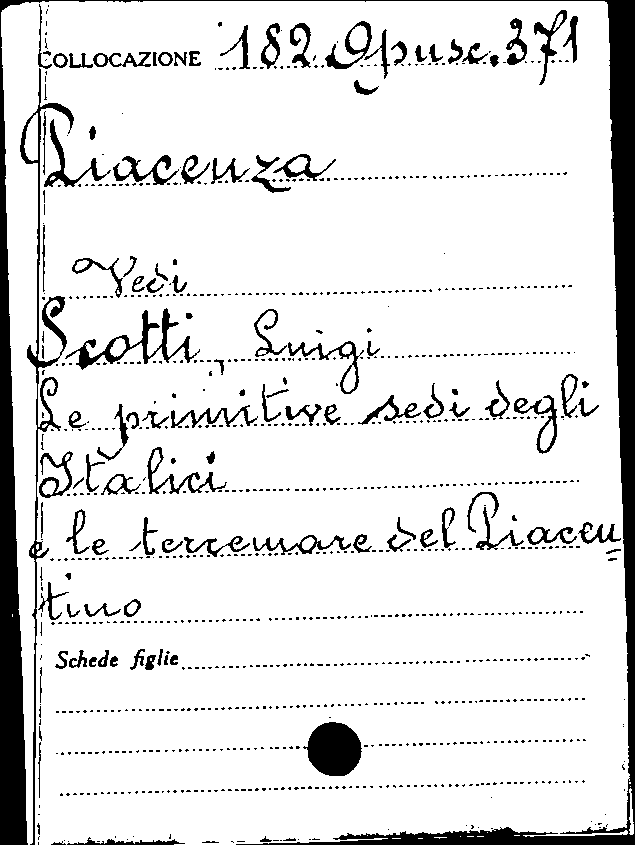 COLLOCAZIONE 182 Opusc. 371
Piacenza
Vedi
Scotti, Luigi
Le primitive sedi degli
Italici
e le terremare del Piacen=
tino
Schede figlie